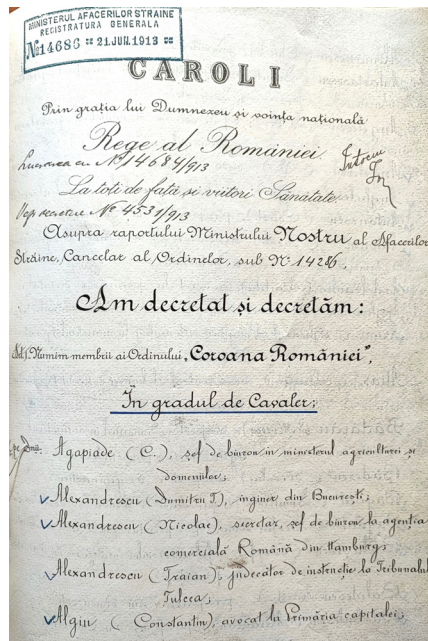 MINISTERUL AFACERILOR STRAINE
REGISTRATURA GENERALA
№14686 21.JUN.1913
CAROL I
Prin grația lui Dumnezeu și voința națională
Rege al României
Lucrarea cu № 14684/913
La toți de față și viitori Sănătate
№ 4531/913
Asupra raportului Ministrului Nostru al Afacerilor
Străine, Cancelar al Ordinelor, sub № 14286,
Am decretat și decretăm:
Art. I. Numim membrii ai Ordinului „Coroana României”,
În gradul de Cavaler;
pe Dnii: Agapiade (C.), șef de birou în ministerul agriculturei și
domeniilor;
Alexandrescu (Dumitru T.), inginer din București;
Alexandrescu (Nicolae), secretar, șef de birou la agenția
comercială Română din Hamburg;
Alexandrescu (Traian), judecător de instrucție la Tribunalul
Tulcea;
Algiu (Constantin), avocat la Primăria capitalei;